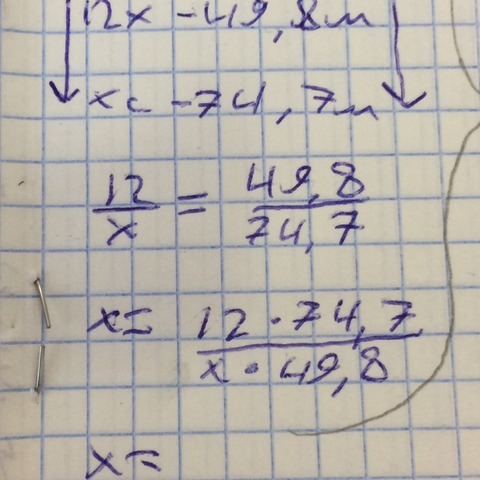 12x - 49,8м
xс - 74,7м
12/x = 49,8/74,7
x = 12·74,7/x·49,8
x =